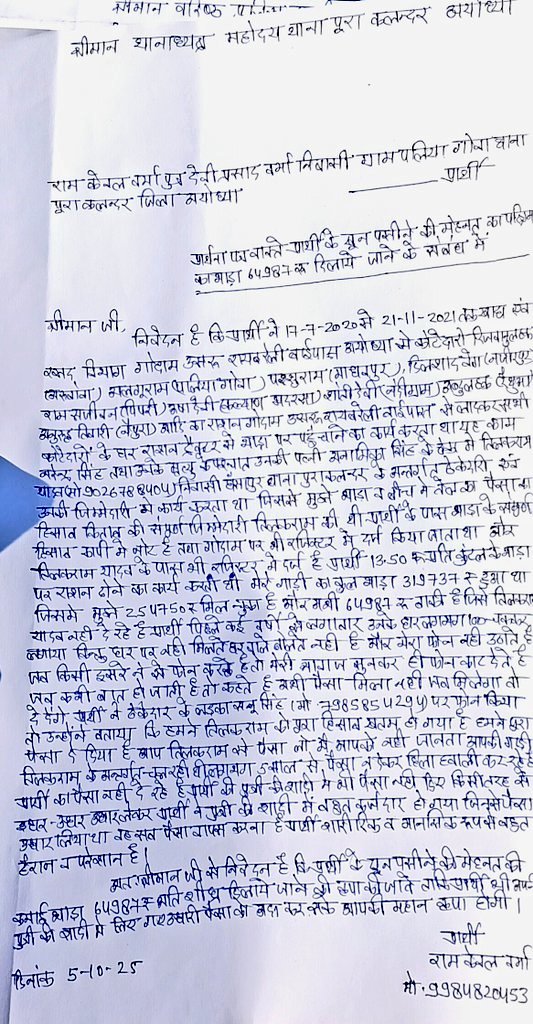 श्रीमान वरिष्ठ
श्रीमान थानाध्यक्ष महोदय थाना पूरा कलन्दर अयोध्या
राम केवल वर्मा पुत्र देवी प्रसाद वर्मा निवासी ग्राम पलिया गोवा थाना
पूरा कलन्दर जिला अयोध्या ——— प्रार्थी
प्रार्थना पत्र वास्ते प्रार्थी के खून पसीने की मेहनत का
का भाड़ा 64987 रू दिलाये जाने के संबंध में
श्रीमान जी,
निवेदन है कि प्रार्थी ने 17-7-2020 से 21-11-2021 तक खाद्य एवं
रसद विभाग गोदाम उसरू रायबरेली बाईपास अयोध्या से कोटेदारो
मालगूराम (पलिया गोवा) परशुराम (माधवपुर), दिलशाद बेग
राम सजीवन (पिपरी) ऊषा देवी (कल्याण भदरसा) शांती देवी (नंदीग्राम)
तिवारी आदि का राशन गोदाम उसरू रायबरेली बाईपास से लादकर सभी
कोटेदारो के घर राशन ट्रैक्टर से भाड़ा पर पहुंचाने का कार्य करता था यह काम
सिंह तथा उनके मृत्यु उपरान्त उनकी पत्नी अनामिका सिंह के तिलकराम
यादव मो 9026788404) निवासी हंसपुर थाना पूराकलन्दर के अन्तर्गत ठेकेदारी एवं
उनकी जिम्मेदारी में कार्य करता था जिसमे मुझे भाड़ा व बीच में तेल का पैसा व
हिसाब किताब की संपूर्ण जिम्मेदारी तिलकराम की थी प्रार्थी के पास भाड़ा के सम्पूर्ण
हिसाब कापी में नोट है तथा गोदाम पर भी रजिस्टर में दर्ज किया जाता था और
तिलकराम यादव के पास भी रजिस्टर में दर्ज है प्रार्थी 13.50 रू प्रति कुंटल के भाड़ा
पर राशन ढोने का कार्य करती थी मेरे गाड़ी का कुल भाड़ा 319737 रू हुआ था
जिसमे मुझे 254750 रू मिल चुका है और अभी 64987 रू बाकी है जिसे तिलकराम
यादव नही दे रहे है प्रार्थी पिछले कई वर्षो से लगातार उनके घर लगभग 100 चक्कर
लगाया किन्तु घर पर नही मिलते घर वाले बोलते नही है और मेरा फोन नही उठाते है
जब किसी दूसरे नं से फोन करते है तो मेरी आवाज सुनकर ही फोन काट देते है
जब कभी बात हो जाती है तो कहते है अभी पैसा मिला नही जब मिलेगा तो
दे देंगे प्रार्थी ने ठेकेदार के लड़का सिंह (मो 7985854294) पर फोन किया
तो उन्होने बताया कि हमने तिलकराम को पूरा हिसाब खतम हो गया है हमने पूरा
पैसा दे दिया है आप तिलकराम से पैसा लो मै आपको नही जानता आपकी गाड़ी
तिलकराम के अन्तर्गत चल रही थी लगभग 5 साल से पैसा न देकर हिला हवाली कर रहे है
प्रार्थी का पैसा नही दे रहे है प्रार्थी की पुत्री की शादी में भी पैसा नही दिए किसी तरह से
इधर-उधर उधार लेकर प्रार्थी ने पुत्री की शादी में बहुत कर्जदार हो गया जिनसे पैसा
उधार लिया था वह सब पैसा वापस करना है प्रार्थी शारीरिक व मानसिक रूप से बहुत
हैरान व परेशान है।
अतः श्रीमान जी से निवेदन है कि प्रार्थी के खून पसीने की मेहनत की
कमाई भाड़ा 64987 रू अति शीघ्र दिलाये जाने की कृपा की जाये ताकि प्रार्थी भी अपने
पुत्री की शादी में लिए गए उधारी पैसा को अदा कर सके आपकी महान कृपा होगी।
प्रार्थी
राम केवल वर्मा
दिनांक 5-10-25
मो. 9984820453